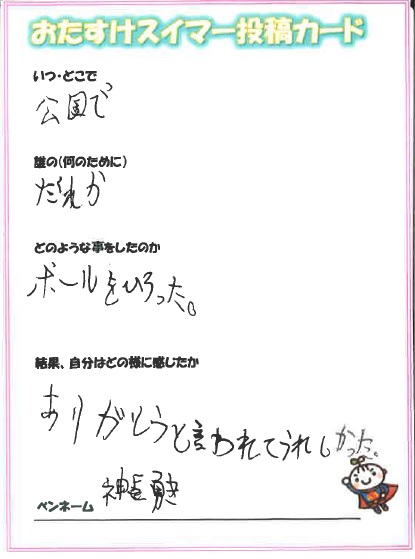 おたすけスイマー投稿カード
いつ・どこで
公園で
誰の(何のために)
だれか
どのような事をしたのか
ボールをひろった。
結果、自分はどの様に感じたか
ありがとうと言われてうれしかった。
ペンネーム